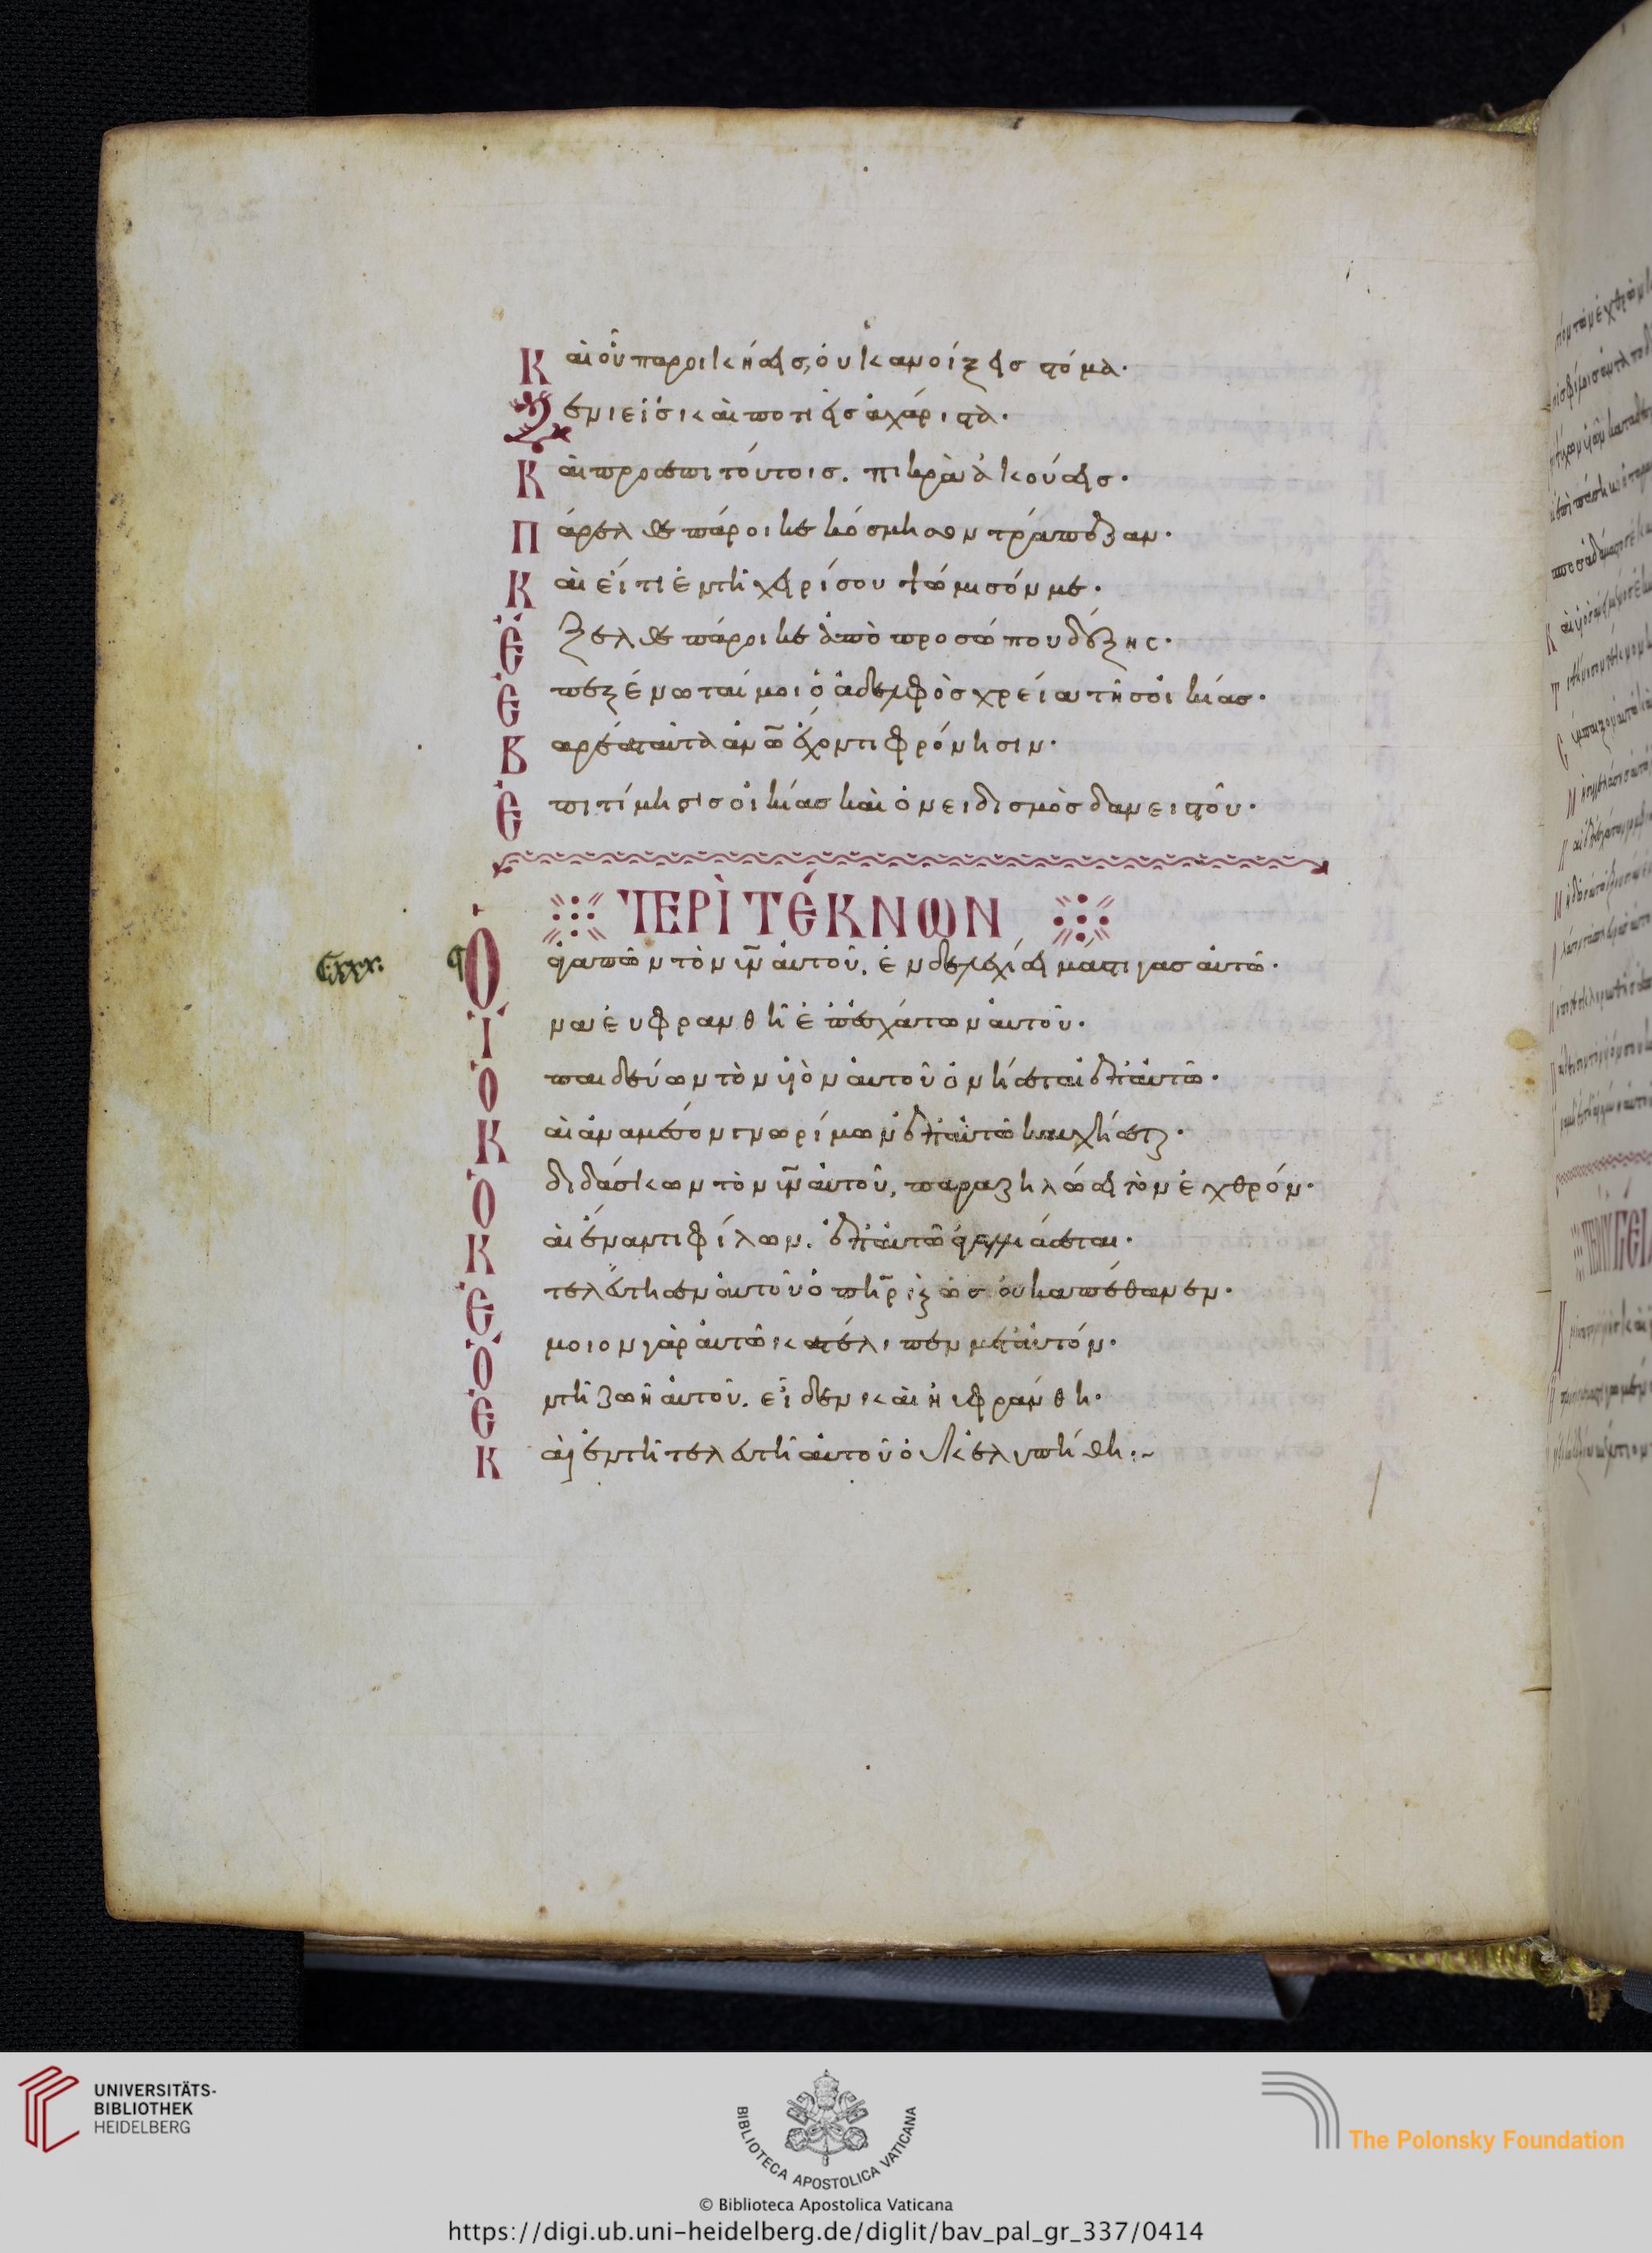 Καὶ οὗ παροικήσεις, οὐκ ἀνοίξεις στόμα·
Ξενιεῖς καὶ ποτιεῖς ἀχάριστα·
Καὶ πρὸς ἐπὶ τούτοις. πικρὰ ἀκούσεις·
Πάρελθε πάροικε κόσμησον τράπεζαν·
Καὶ εἴ τι ἐν τῆ χειρί σου ψώμισόν με·
Ἔξελθε πάροικε ἀπὸ προσώπου δόξης·
Ἐπεξένωταί μοι ὁ ἀδελφὸς χρεία τῆς οἰκίας·
Βαρέα ταῦτα ἀνω̄ ἔχοντι φρόνησιν·
Ἐπιτίμησις οἰκίας καὶ ὀνειδισμὸς δανειστοῦ·
ΠΕΡῚ ΤΈΚΝΩΝ
C. xxx.
Ὁ ἀγαπῶν τὸν ῡν αὐτοῦ, ἐνδελεχιεῖ μάστιγας αὐτῶ·
Ἵνα εὐφρανθῆ ἐπ' ἐσχάτων αὐτοῦ·
Ὁ παιδεύων τὸν υἱὸν αὐτοῦ ὀνήσεται ἐπ' αὐτῶ·
Καὶ ἀναμέσον γνωρίμων ἐπ' αὐτῶ καυχήσεται·
Ὁ διδάσκων τὸν ῡν αὐτοῦ, παραζηλώσει τὸν ἐχθρόν·
Καὶ ἔναντι φίλων. ἐπ' αὐτῶ ἀγαλλιάσεται·
Ἐτελεύτησεν αὐτοῦ ὁ πη̄ρ καὶ ὡς οὐκ ἀπέθανεν·
Ὅμοιον γὰρ αὐτῶ κατέλιπεν μετ' αὐτόν·
Ἐν τῆ ζωῆ αὐτοῦ. εἶδεν καὶ ηὐφράνθη·
Καὶ ἐν τῆ τελευτῆ αὐτοῦ οὐκ ἐλυπήθη:~
UNIVERSITÄTS-
BIBLIOTHEK
HEIDELBERG
BIBLIOTECA APOSTOLICA VATICANA
The Polonsky Foundation
© Biblioteca Apostolica Vaticana
https://digi.ub.uni-heidelberg.de/diglit/bav_pal_gr_337/0414